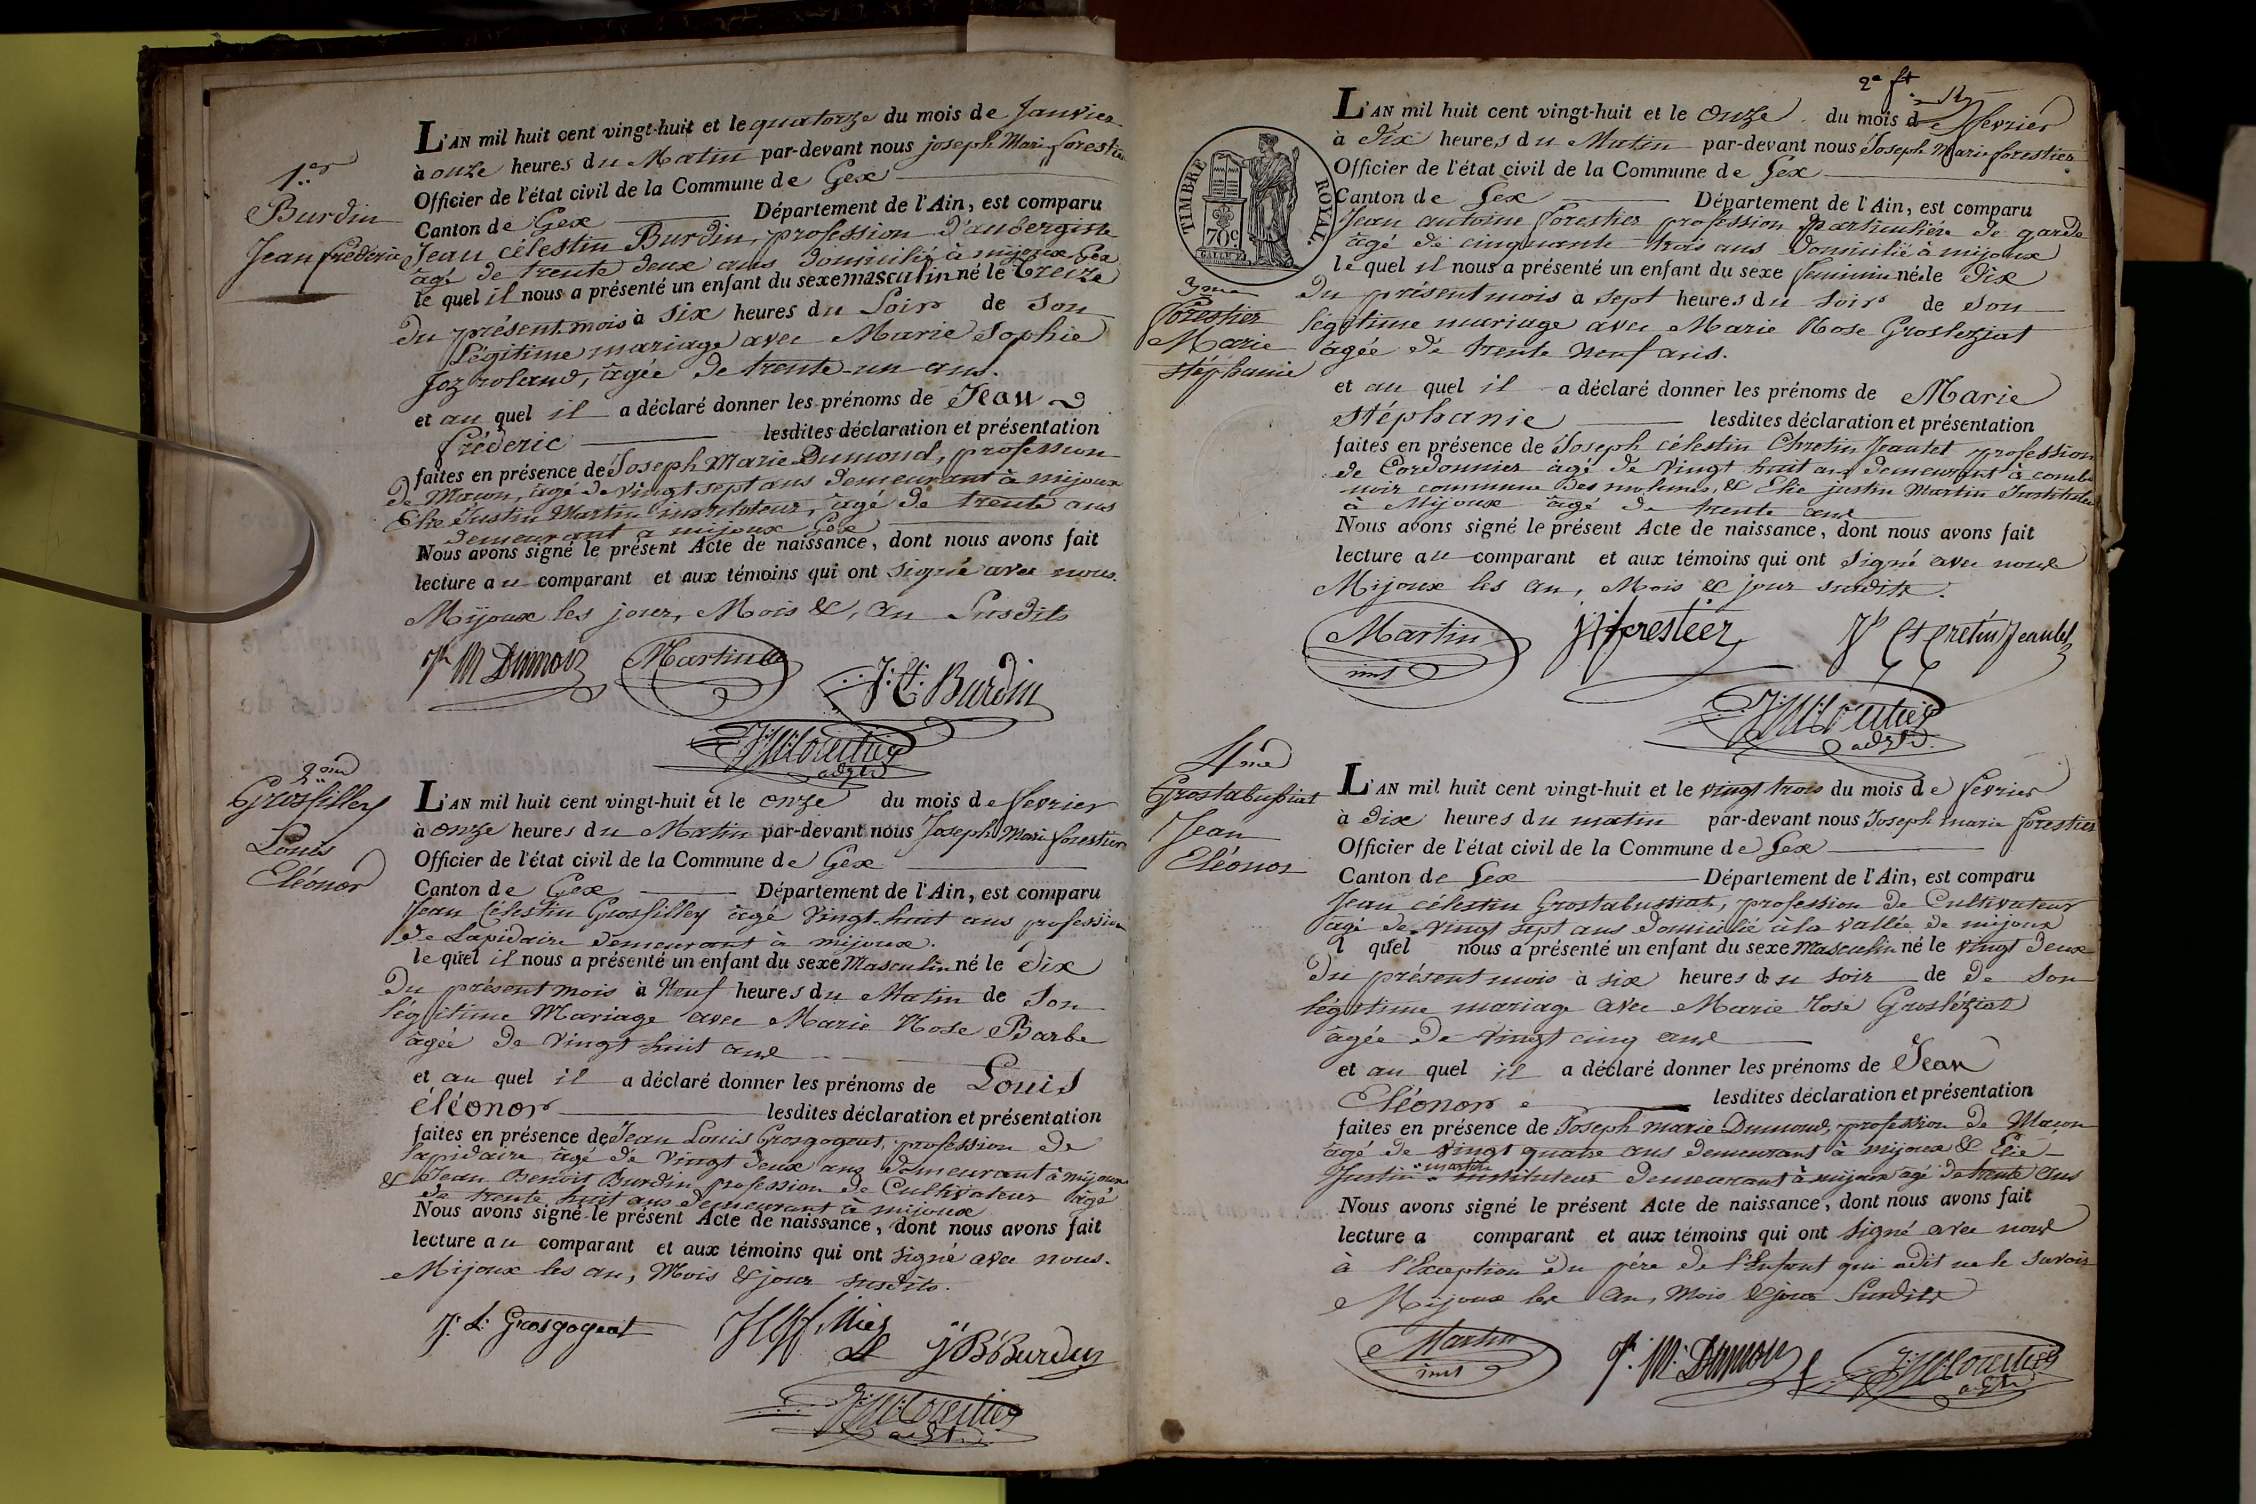 1.er
Burdin
Jean fréderic
L'AN mil huit cent vingt-huit et le quatorze du mois de Janvier
à onze heures du Matin par-devant nous joseph Marie forestier
Officier de l'état civil de la Commune de Gex
Canton de Gex Département de l'Ain, est comparu
Jean célestin Burdin, profession d'aubergiste
âgé de trente deux ans domicilié à mijoux Gex
le quel il nous a présenté un enfant du sexe masculin né le treize
du présent mois à six heures du Soir de son
légitime mariage avec Marie Sophie
Jozroland, âgée de trente-un ans.
et au quel il a déclaré donner les prénoms de Jean
fréderic lesdites déclaration et présentation
faites en présence de Joseph Marie Dumond, profession
de Macon, âgé de vingt sept ans demeurant à mijoux
Elie Justin Martin instituteur, âgé de trente ans
demeurant a mijoux Gex
Nous avons signé le présent Acte de naissance, dont nous avons fait
lecture au comparant et aux témoins qui ont signé avec nous.
Mijoux les jour, Mois &, an Susdits
Jh M Dumon Martin
J: C: Burdin
2.me
Grosfilley
Louis
Eléonor
L'AN mil huit cent vingt-huit et le onze du mois de fevrier
à onze heures du Matin par-devant nous Joseph Marie forestier
Officier de l'état civil de la Commune de Gex
Canton de Gex Département de l'Ain, est comparu
Jean Célestin Grosfilley âgé vingt-huit ans profession
de Lapidaire demeurant à mijoux.
le quel il nous a présenté un enfant du sexe Masculin né le dix
du présent mois à Neuf heures du Matin de son
légitime Mariage avec Marie Rose Barbe
âgée de vingt huit ans
et au quel il a déclaré donner les prénoms de Louis
éléonor lesdites déclaration et présentation
faites en présence de Jean Louis Grosgogeat, profession de
lapidaire âgé de vingt deux ans demeurant à mijoux
& Jean Benoit Burdin profession de Cultivateur âgé
de trente huit ans demeurant a mijoux
Nous avons signé le présent Acte de naissance, dont nous avons fait
lecture au comparant et aux témoins qui ont signé avec nous.
Mijoux les an, Mois & jour susdits.
J: L: Grosgogeat
J B Burdin
2e ft.
TIMBRE ROYAL.
70c
3me
Forestier
Marie
stéphanie
L'AN mil huit cent vingt-huit et le onze du mois de fevrier
à dix heures du Matin par-devant nous Joseph Marie forestier
Officier de l'état civil de la Commune de Gex
Canton de Gex Département de l'Ain, est comparu
Jean antoine forestier profession Particulière de garde
âgé de cinquante trois ans domicilié à mijoux
le quel il nous a présenté un enfant du sexe feminin né le dix
du présent mois à sept heures du soir de son
légitime mariage avec Marie Rose Grosleziat
âgée de trente neuf ans.
et au quel il a déclaré donner les prénoms de Marie
stéphanie lesdites déclaration et présentation
faites en présence de Joseph célestin Chretin Jeantet profession
de Cordonnier âgé de vingt huit ans demeurant à combe
noir commune des molunes, & Elie justin Martin Instituteur
à Mijoux âgé de trente ans
Nous avons signé le présent Acte de naissance, dont nous avons fait
lecture au comparant et aux témoins qui ont signé avec nous
Mijoux les an, Mois & jour susdits.
Martin
inst
forestier
Jh Ct Cretin Jeantet
4me
Grostabussiat
Jean
Eléonor
L'AN mil huit cent vingt-huit et le vingt trois du mois de fevrier
à dix heures du matin par-devant nous Joseph marie forestier
Officier de l'état civil de la Commune de Gex
Canton de Gex Département de l'Ain, est comparu
Jean célestin Grostabussiat, profession de Cultivateur
âgé de vingt sept ans domicilié à la vallée de mijoux
l quel nous a présenté un enfant du sexe Masculin né le vingt deux
du présent mois à six heures du soir de de son
légitime mariage avec Marie rose Grosléziat
âgée de vingt cinq ans
et au quel il a déclaré donner les prénoms de Jean
Eléonor lesdites déclaration et présentation
faites en présence de Joseph marie Dumond, profession de Maçon
âgé de vingt quatre ans demeurant à mijoux & Elie
Justin martin instituteur demeurant à mijoux âgé de trente ans
Nous avons signé le présent Acte de naissance, dont nous avons fait
lecture a comparant et aux témoins qui ont signé avec nous
à l'exception du père de l'Enfant qui a dit ne le savoir
Mijoux les an, Mois & jour Susdits
Martin
inst
Jh: M: Dumon